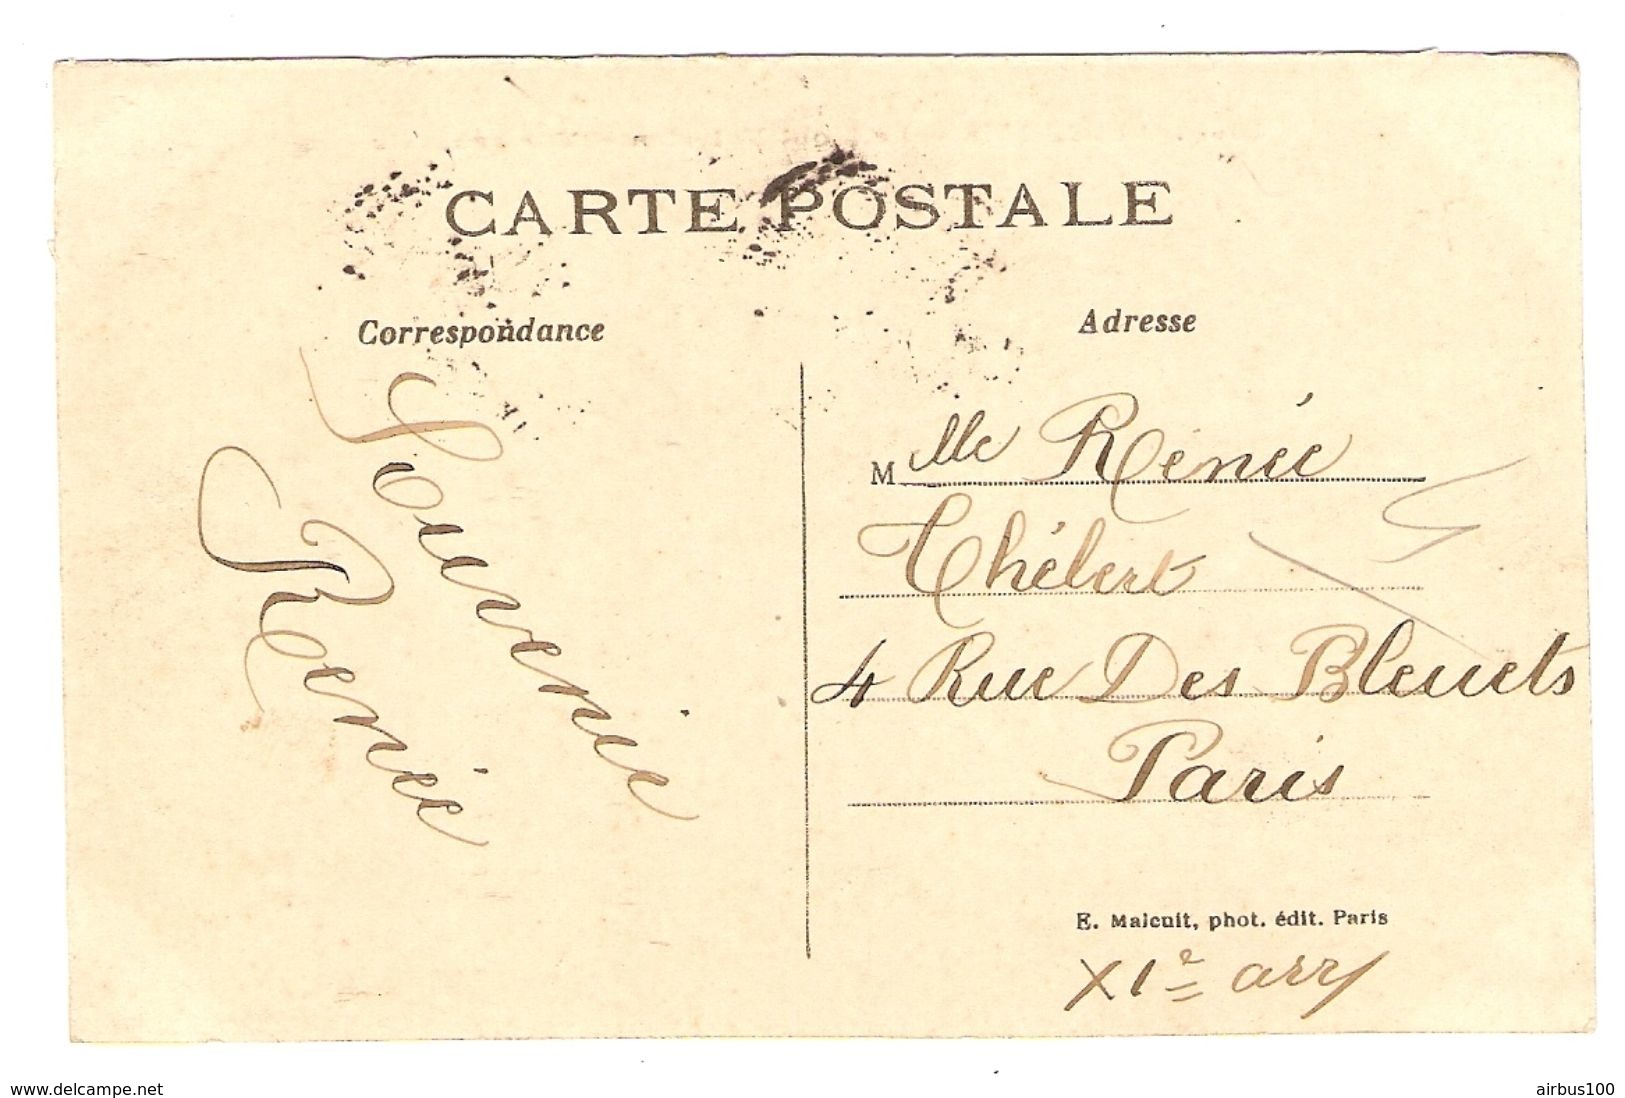 CARTE POSTALE
Correspondance
Adresse
Souvenir
Renée
Mlle Renée
Thébert
4 Rue Des Bleuets
Paris
E. Malcuit, phot. édit. Paris
XIe arr
www.delcampe.net
airbus100